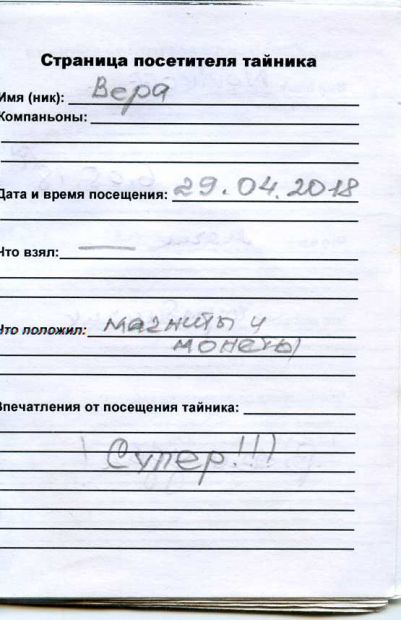 Страница посетителя тайника
Имя (ник): Вера
Компаньоны:
Дата и время посещения: 29.04.2018
Что взял: —
Что положил: магниты и
монеты
Впечатления от посещения тайника:
Супер!!!